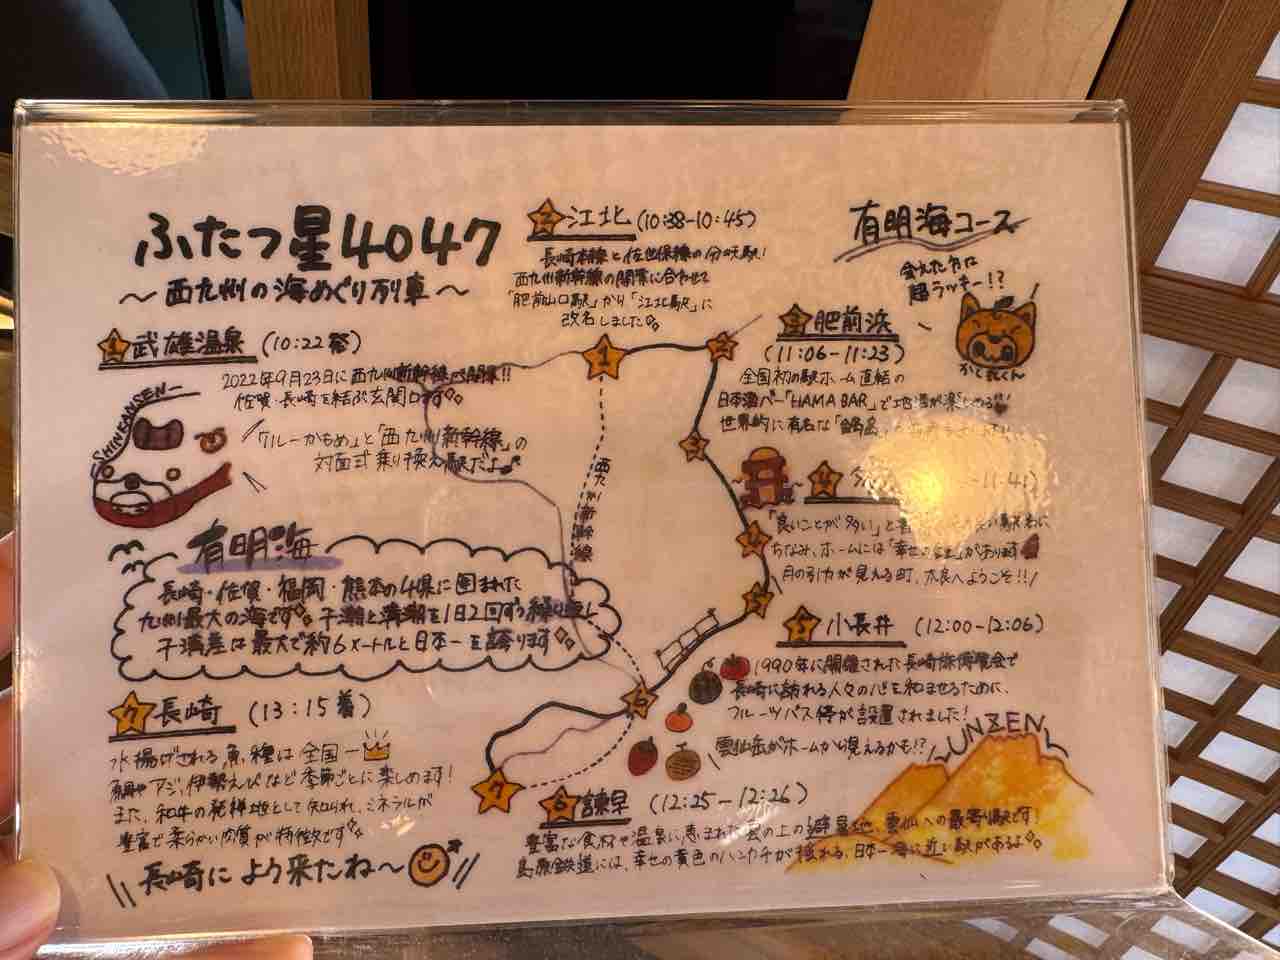 ふたつ星4047
～西九州の海めぐり列車～
有明海コース
会えた方は
超ラッキー!?
がくまくん
1 武雄温泉 (10:22発)
2022年9月23日に西九州新幹線が開業!!
佐賀・長崎を結ぶ玄関口です。
「リレーかもめ」と「西九州新幹線」の
対面式乗り換え駅だよ
SHINKANSEN
2 江北 (10:38-10:45)
長崎本線と佐世保線の分岐駅!
西九州新幹線の開業に合わせて
「肥前山口駅」から「江北駅」に
改名しました。
3 肥前浜
(11:06-11:23)
全国初の駅ホーム直結の
日本酒バー「HAMA BAR」で地酒が楽しめる!
世界的に有名な「鍋島」
4
-11:41)
「良いことが多い」と
ちなみ、ホームには「幸せの鐘」があります
月の引力が見える町、太良へようこそ!!
5 小長井 (12:00-12:06)
1990年に開催された長崎旅博覧会で
長崎に訪れる人々の心を和ませるために、
フルーツバス停が設置されました!
雲仙岳がホームから見えるかも!?
UNZEN
6 諫早 (12:25-12:26)
豊富な食材や温泉に恵まれた雲の上の避暑地、雲仙への最寄り駅です!
島原鉄道には、幸せの黄色のハンカチが揺れる、日本一海に近い駅があるよ。
7 長崎 (13:15着)
水揚げされる魚種は全国一
鯛やアジ、伊勢えびなど季節ごとに楽しめます!
また、和牛の発祥地として知られ、ミネラルが
豊富で柔らかい肉質が特徴です。
長崎によう来たね～
有明海
長崎・佐賀・福岡・熊本の4県に囲まれた
九州最大の海です。干潮と満潮を1日2回ずつ繰り返し
干満差は最大で約6メートルと日本一を誇ります。
西九州新幹線
1
2
3
4
5
6
7